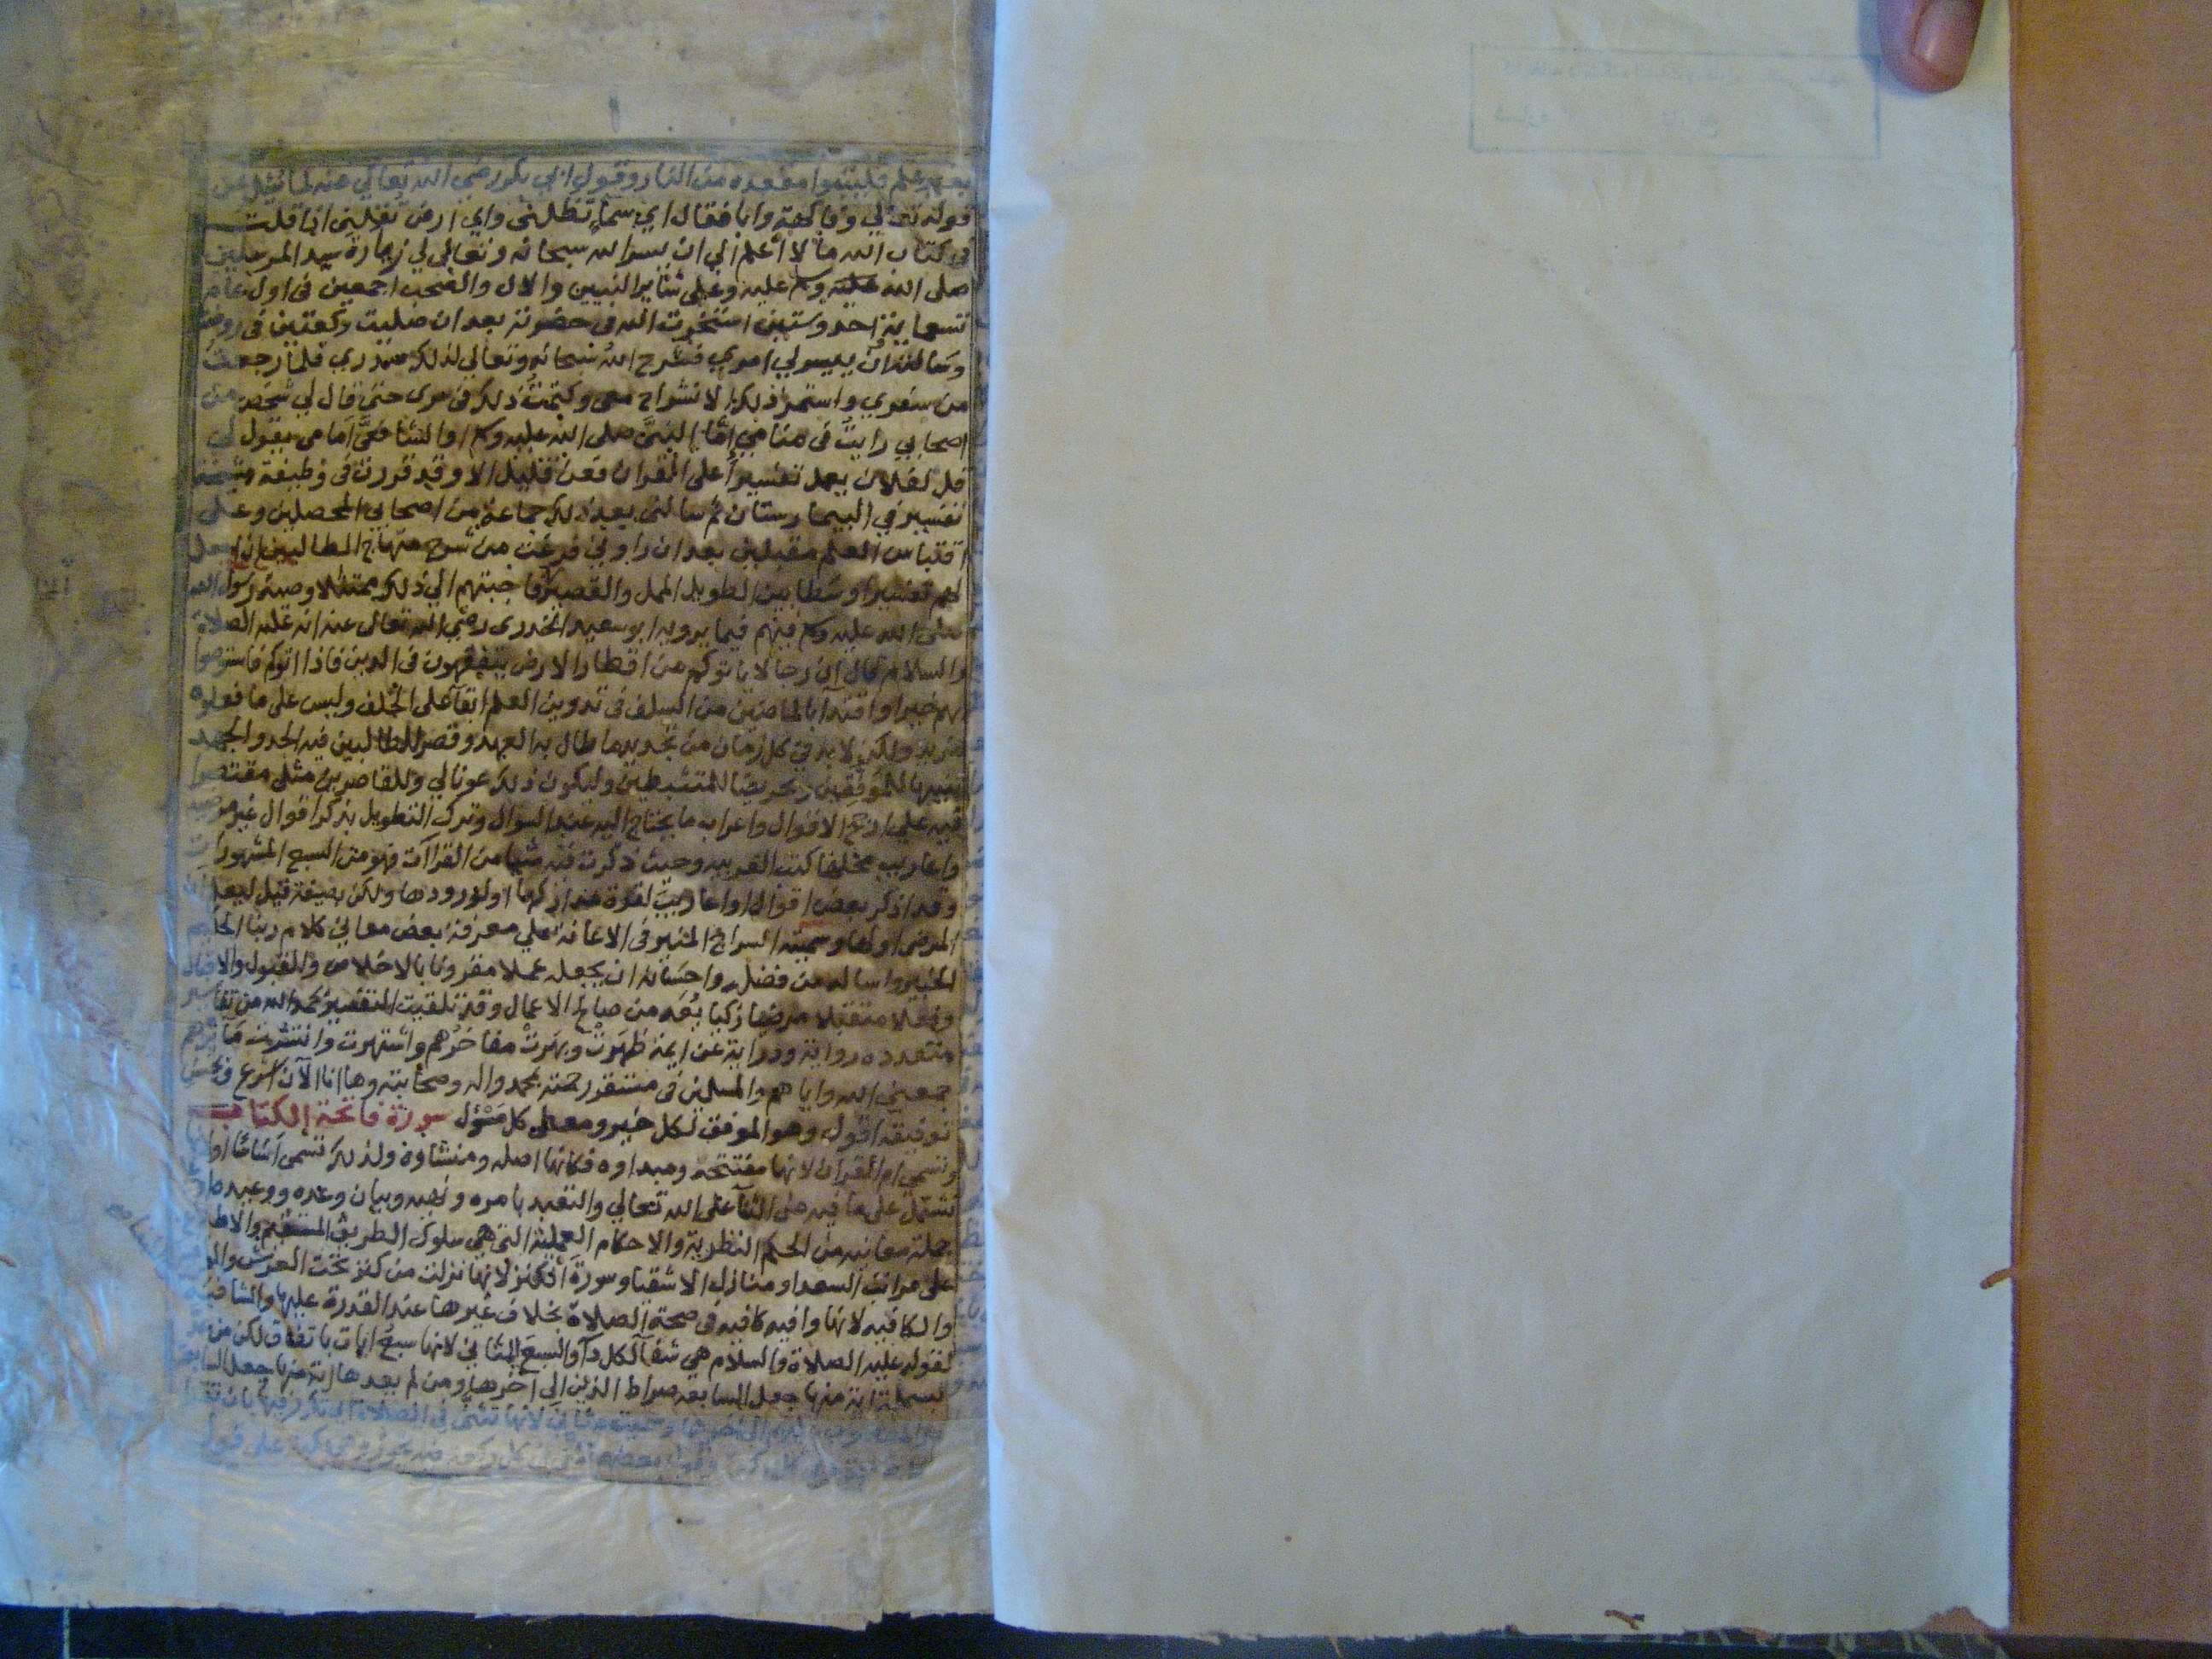 بغير علم فليتبوا مقعده من النار وقول ابي بكر رضي الله تعالي عنه لما سئل عن
قوله تعالي وفاكهة وابا فقال اي سماء تظلني واي ارض تقلني اذا قلت
في كتاب الله ما لا اعلم الي ان يسر الله سبحانه وتعالي لي زيارة سيد المرسلين
صلى الله عليه وسلم عليه وعلى سائر النبيين والال والصحب اجمعين في اول عام
تسعماية احد وستين استخرت الله في حضرته بعد ان صليت ركعتين في روضته
وسالته ان ييسر لي امري فشرح الله سبحانه وتعالي لذلك صدري فلما رجعت
من سفري واستمر ذلك الانشراح معي وكتمت ذلك في سري حتى قال لي شخص من
اصحابي رايت في منامي اما النبي صلى الله عليه وسلم او الشافعي امامي يقول لي
قل لفلان يعمل تفسيرا على القران فعن قليل الا وقد قررت في وظيفة مشيخة
تفسير في البيمارستان ثم سالني بعد ذلك جماعة من اصحابي المحصلين وعلى
اقتباس العلم مقبلين بعد ان راوني فرغت من شرح منهاج الطالبين ان اجعل
لهم تفسيرا وسطا بين الطويل الممل والقصير فاجبتهم الي ذلك ممتثلا وصية رسول الله
صلى الله عليه وسلم فيهم فيما يرويه ابو سعيد الخدرى رضي الله تعالى عنه انه عليه الصلاة
والسلام قال ان رجالا ياتوكم من اقطار الارض يتفقهون في الدين فاذا اتوكم فاستوصوا
بهم خيرا واقتدآ بالماضين من السلف في تدوين العلم ابقآ على الخلف وليس على ما فعلوه
مزيد ولكن لا بد في كل زمان من تجديد ما طال به العهد وقصر للطالبين فيه الجد والجهد
تنبيها للمتوقفين وتحريضا للمتثبطين وليكون ذلك عونا لي وللقاصرين مثلي مقتصرا
فيه علي ارجح الاقوال واعراب ما يحتاج اليه عند السوال وترك التطويل بذكر اقوال غير مرضية
واعاريب محلها كتب العربيه وحيث ذكرت فيه شيا من القراآت فهو من السبع المشهورات
وقد اذكر بعض اقوال واعاريب لقوة مداركها او لورودها ولكن بصيغة قيل ليعلم ان
المرضي اولها وسميته السراج المنير في الاعانة علي معرفة بعض معاني كلام ربنا الحكيم
الخبير واساله من فضله واحسانه ان يجعله عملا مقرونا بالاخلاص والقبول والاقبال
وفعلا متقبلا مرضيا زكيا يعد من صالح الاعمال وقد تلقيت التفسير بحمد الله من تفاسير
متعدده رواية ودراية عن ايمة ظهرت وبهرت مفاخرهم واشتهرت وانتشرت مآثرهم
جمعني الله واياهم والمسلمين في مستقر رحمته بمحمد واله وصحابته وها انا الآن اشرع وبحسن
توفيقه اقول وهو الموفق لكل خير ومعطى كل مسؤل سورة فاتحة الكتاب
وتسمي ام القران لانها مفتتحه ومبداوه فكانها اصله ومنشاوه ولذلك تسمى اساسا او لانها
تشتمل على ما فيه من الثنآ على الله تعالي والتعبد بامره ونهيه وبيان وعده ووعيده او على
جملة معانيه من الحكم النظرية والاحكام العملية التي هي سلوك الطريق المستقيم والاطلاع
على مراتب السعدا ومنازل الاشقيا وسورة الكنز لانها نزلت من كنز تحت العرش والوافيه
والكافيه لانها وافيه كافيه في صحة الصلاة بخلاف غيرها عند القدرة عليها والشافيه
لقوله عليه الصلاة والسلام هي شفآ لكل دآ والسبع المثاني لانها سبع ايات باتفاق لكن من
بسملة اية منها جعل السابعه صراط الذين الي آخرها ومن لم يعدها اية منها جعل السابعة
الي اخرها وسميت مثاني لانها تثنى في الصلاة